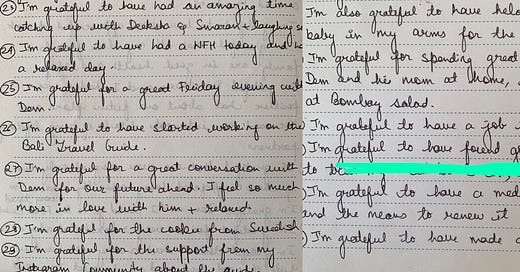 23 I'm grateful to have had an amazing time
catching up with Deeksha & Simran + laughing
24 I'm grateful to have had a WFH today and
a relaxed day.
25 I'm grateful for a great Friday evening with
Dem
26 I'm grateful to have started working on the
Bali Travel Guide.
27 I'm grateful for a great conversation with
Dem for our future ahead. I feel so much
more in love with him + relaxed
28 I'm grateful for the cookie from
29 I'm grateful for the support from my
Instagram Community about the guide
I'm also grateful to have held
baby in my arms for the
I'm grateful for spending great
Dem and his mom at home,
at Bombay salad.
I'm grateful to have a job
I'm grateful to have found
to
I'm grateful to have a med
and the means to renew it
I'm grateful to have made